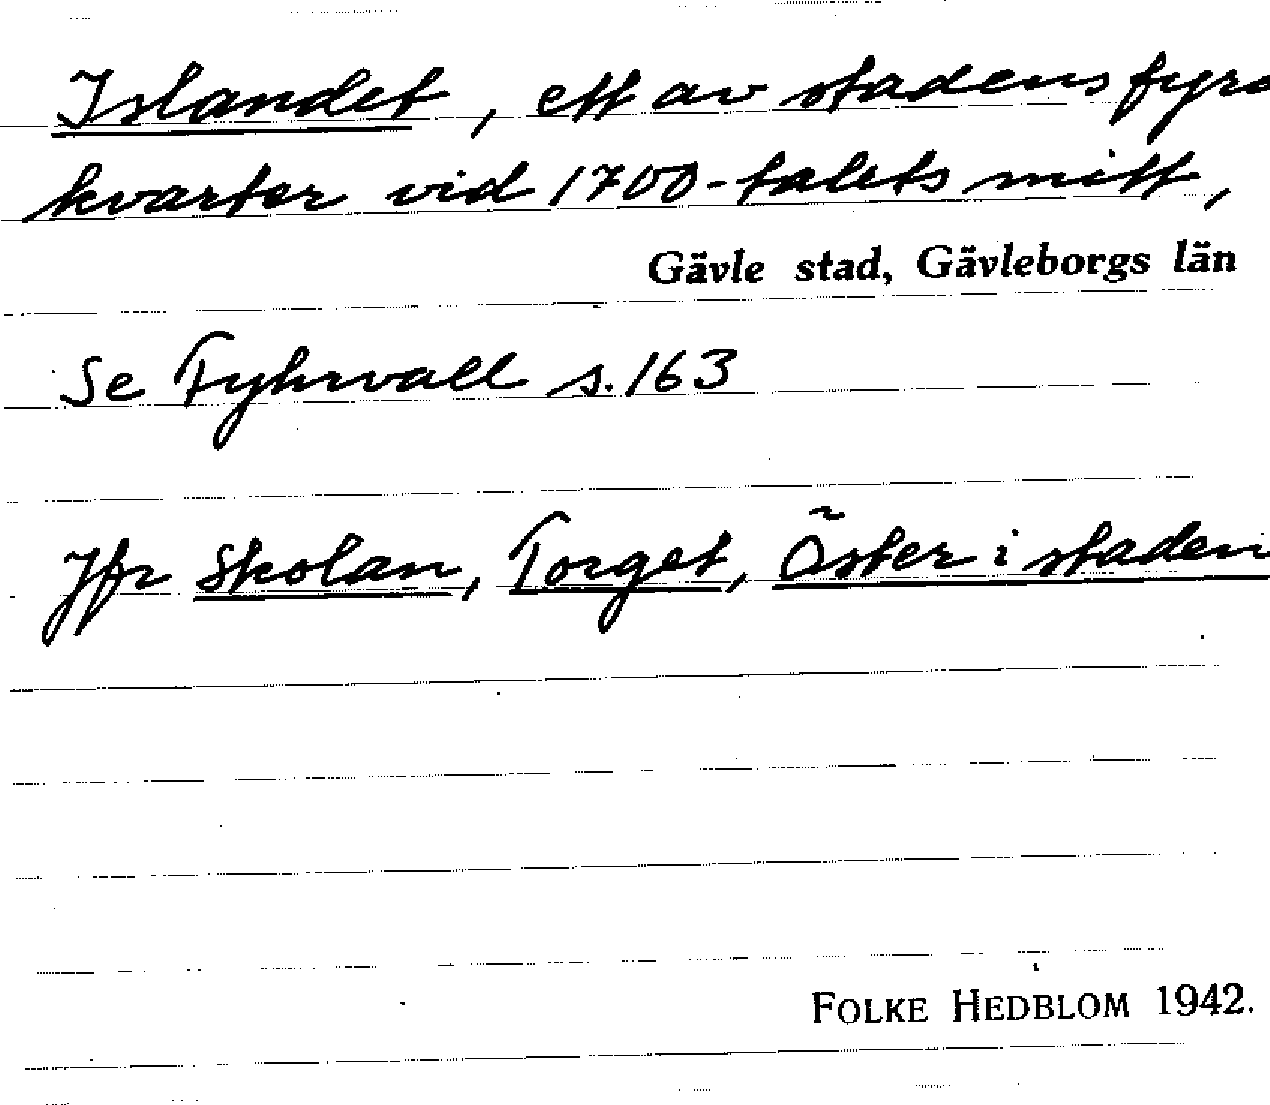 Islandet, ett av stadens fyra
kvarter vid 1700-talets mitt,
Gävle stad, Gävleborgs län
Se Fyhrvall s. 163
Jfr Skolan, Torget, Öster i staden
FOLKE HEDBLOM 1942.